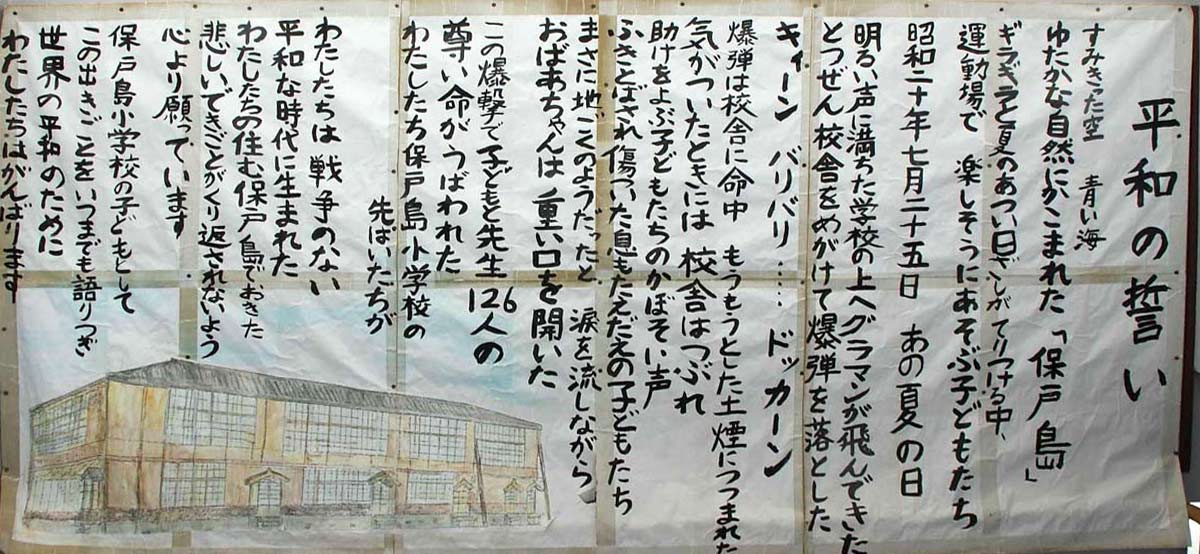 平和の誓い
すみきった空　青い海
ゆたかな自然にかこまれた「保戸島」
ギラギラと夏のあつい日ざしがてりつける中、
運動場で　楽しそうにあそぶ子どもたち
昭和二十年七月二十五日　あの夏の日
明るい声に満ちた学校の上へグラマンが飛んできた
とつぜん校舎をめがけて爆弾を落とした
キィーン　バリバリ……ドッカーン
爆弾は校舎に命中　もうもうとした土煙につつまれた
気がついたときには　校舎はつぶれ
助けをよぶ子どもたちのかぼそい声
ふきとばされ傷ついた息もたえだえの子どもたち
まさに地ごくのようだったと　涙を流しながら
おばあちゃんは重い口を開いた
この爆撃で子どもと先生126人の
尊い命がうばわれた
わたしたち保戸島小学校の
先ぱいたちが
わたしたちは戦争のない
平和な時代に生まれた
わたしたちの住む保戸島でおきた
悲しいできごとがくり返されないよう
心より願っています
保戸島小学校の子どもとして
この出きごとをいつまでも語りつぎ
世界の平和のために
わたしたちはがんばります